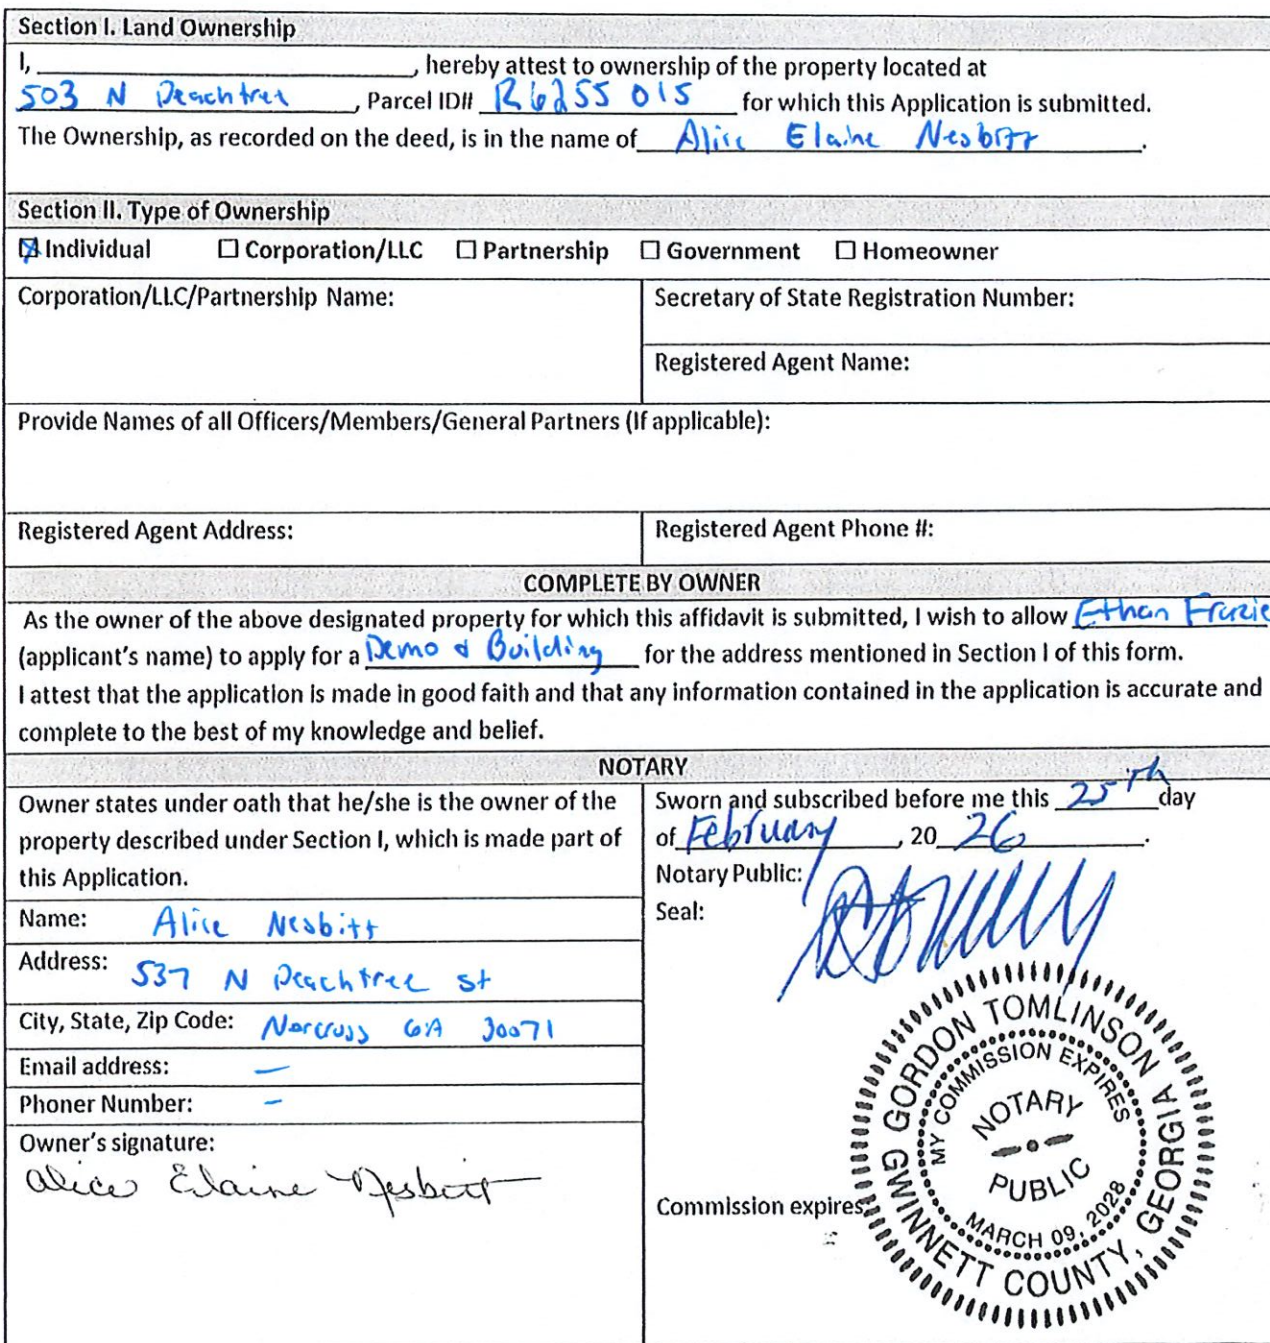 Section I. Land Ownership
I, ____________________, hereby attest to ownership of the property located at
503 N Peachtree, Parcel ID# R6255 015 for which this Application is submitted.
The Ownership, as recorded on the deed, is in the name of Alice Elaine Nesbitt.
Section II. Type of Ownership
☒ Individual ☐ Corporation/LLC ☐ Partnership ☐ Government ☐ Homeowner
Corporation/LLC/Partnership Name:
Secretary of State Registration Number:
Registered Agent Name:
Provide Names of all Officers/Members/General Partners (If applicable):
Registered Agent Address:
Registered Agent Phone #:
COMPLETE BY OWNER
As the owner of the above designated property for which this affidavit is submitted, I wish to allow Ethan Frazie
(applicant's name) to apply for a Demo & Building for the address mentioned in Section I of this form.
I attest that the application is made in good faith and that any information contained in the application is accurate and
complete to the best of my knowledge and belief.
NOTARY
Owner states under oath that he/she is the owner of the
property described under Section I, which is made part of
this Application.
Name: Alice Nesbitt
Address: 537 N Peachtree St
City, State, Zip Code: Norcross GA 30071
Email address: —
Phoner Number: –
Owner's signature:
Alice Elaine Nesbitt
Sworn and subscribed before me this 25th day
of February, 20 26.
Notary Public:
Seal:
GORDON TOMLINSON
GWINNETT COUNTY, GEORGIA
MY COMMISSION EXPIRES
NOTARY
PUBLIC
MARCH 09, 2028
Commission expires: